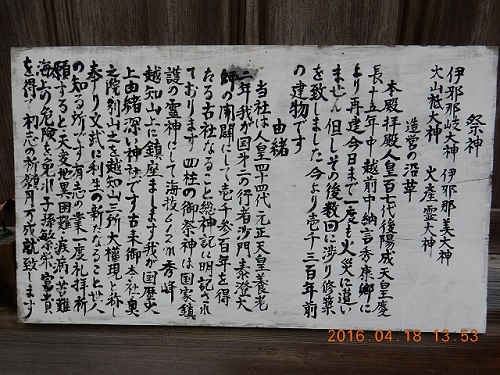 祭神
伊邪那岐大神　伊邪那美大神
大山祗大神　火産霊大神
造営の沿革
本殿拝殿人皇百七代後陽成天皇慶
長十五年中越前中納言秀康卿に
より再建今日まで一度も火災に遭い
ません但しその後数回に渉り修築
を致しました今より壱千三百年前
の建物です
由緒
当社は人皇四十四代元正天皇養老
二年我が国第一の行者沙門泰澄大
師の開闢にして壱千参百年を得
たる古社なること総神記に明記され
ております四柱の御祭神は国家鎮
護の霊神にして海抜六一二・八m秀峰
越知山上に鎮座まします我が国歴史
上由緒深い神社です古来御本社奥
之院別山之を越知山三所大権現と称し
奉り文武に利生の新たなること世人
の知る所です有志の業一度礼拝祈
願すると天変地異困難疾病苦難
海上の危険を免れ子孫繁栄富貴
を得て初志の祈願月万成就致します
2016.04.18 13:53